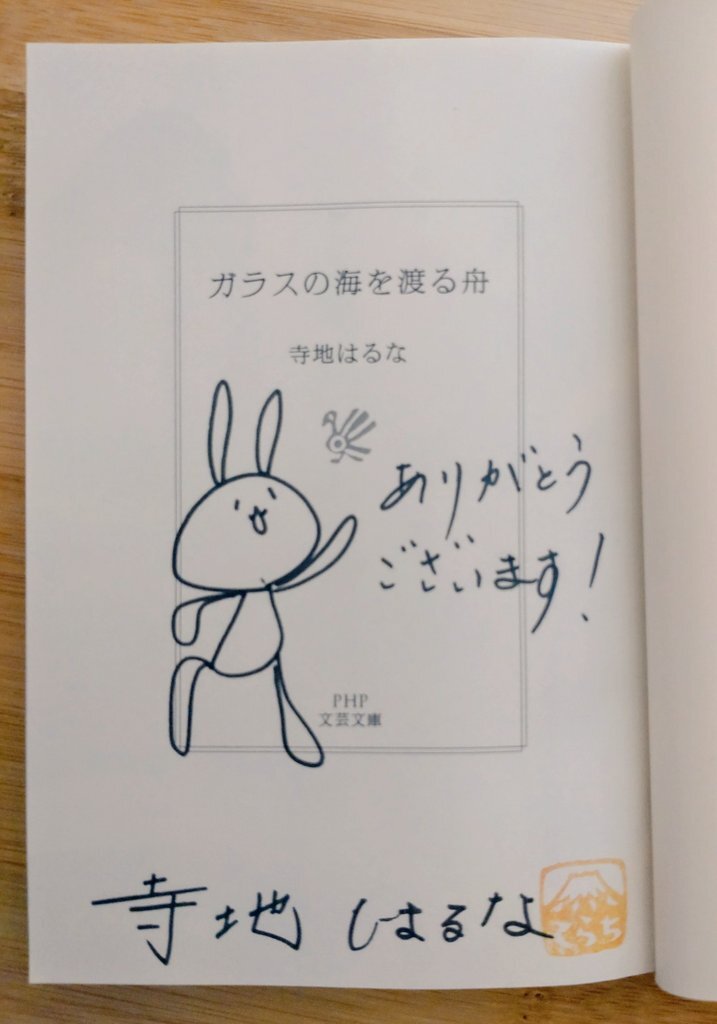 ガラスの海を渡る舟
寺地はるな
ありがとう
ございます!
PHP
文芸文庫
寺地 はるな
てらち